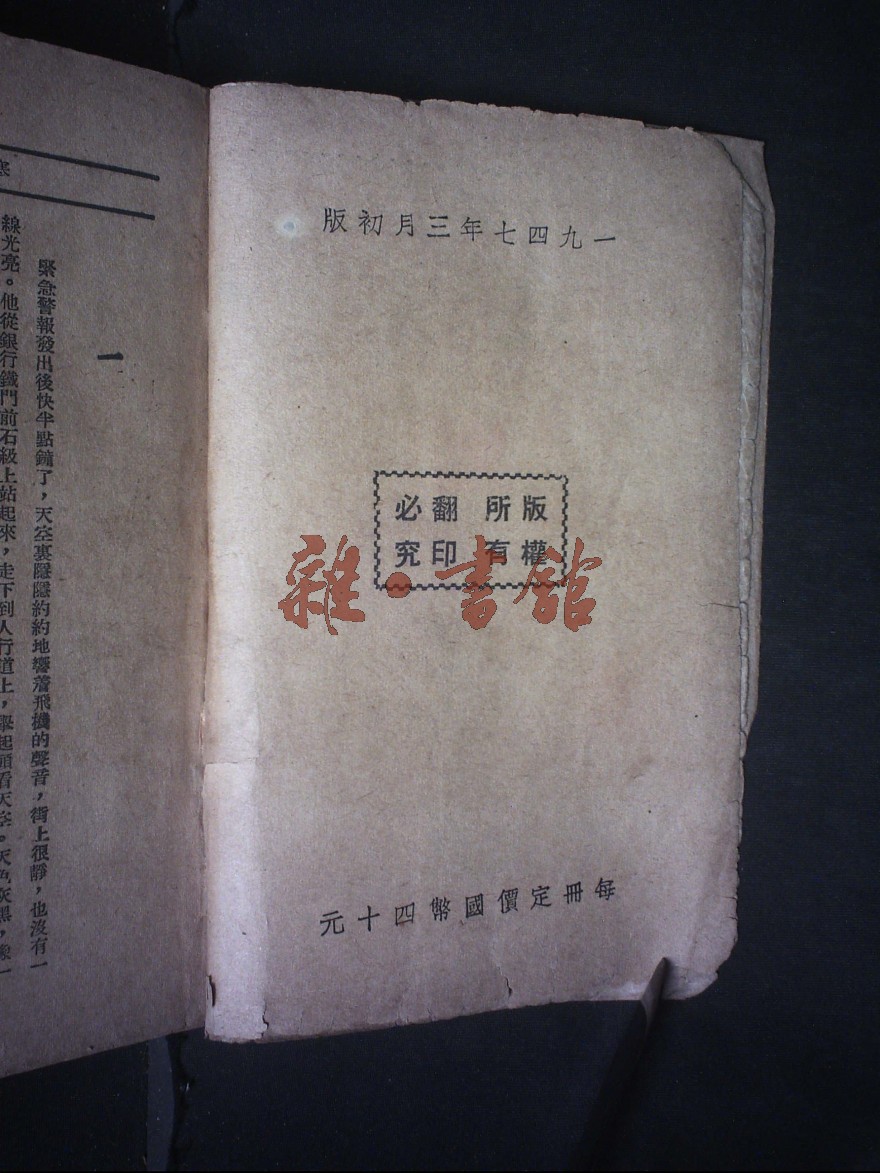 一九四七年三月初版
版權所有
翻印必究
雜·書館
每冊定價國幣四十元
一
緊急警報發出後快半點鐘了，天空裏隱隱約約地響着飛機的聲音，街上很靜，也沒有一
線光亮。他從銀行鐵門前石級上站起來，走下到人行道上，舉起頭看天空。天色灰黑，像一